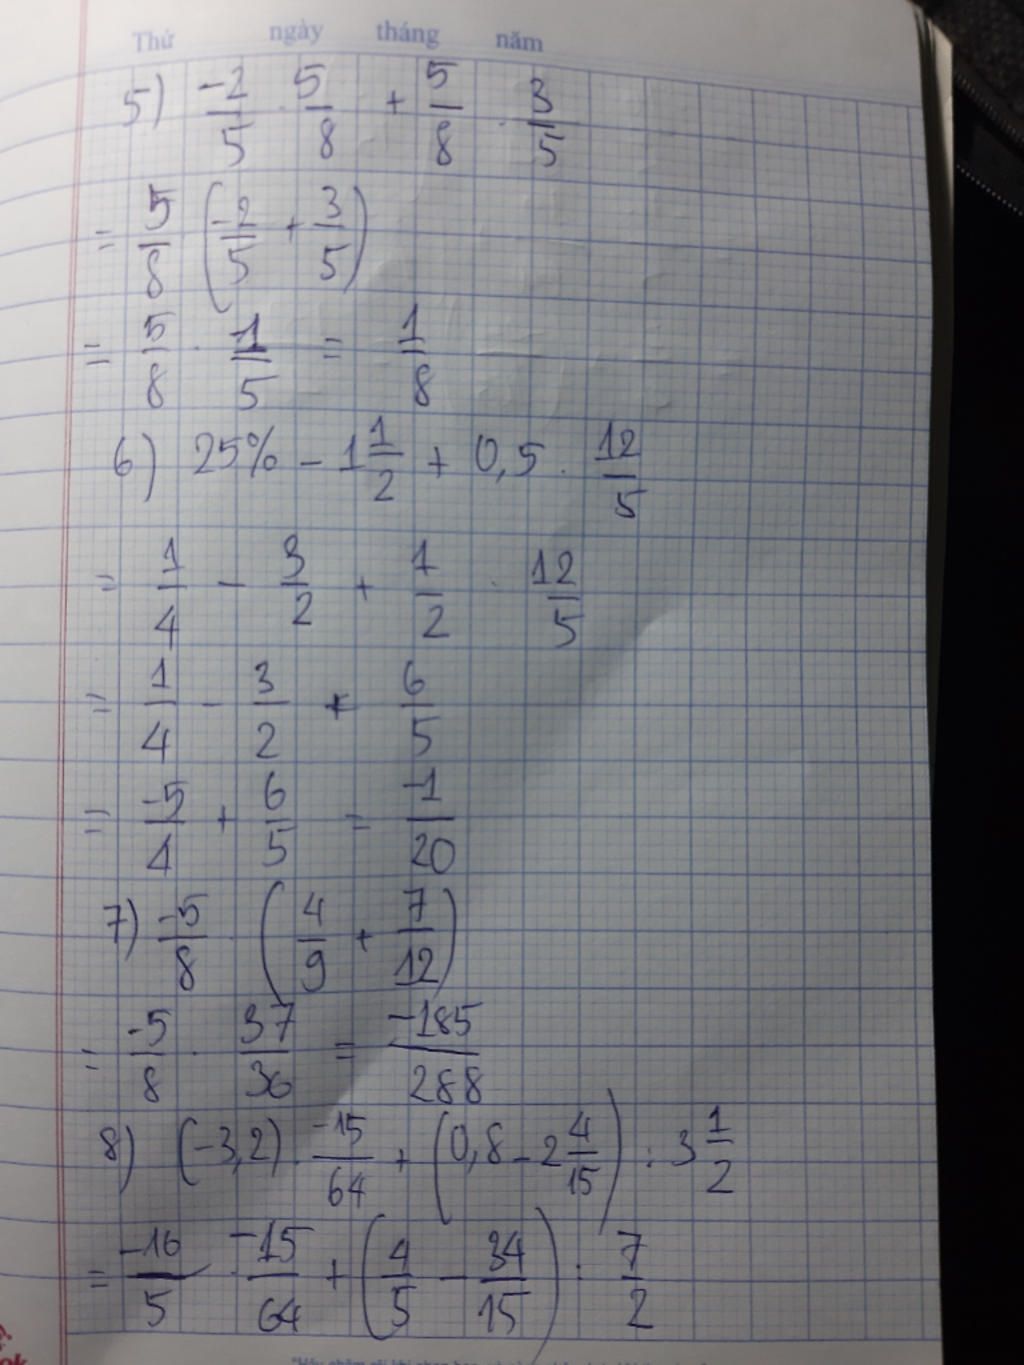 Thứ ngày tháng năm
5) -2/5 . 5/8 + 5/8 . 3/5
= 5/8 (-2/5 + 3/5)
= 5/8 . 1/5 = 1/8
6) 25% - 1 1/2 + 0,5 . 12/5
= 1/4 - 3/2 + 1/2 . 12/5
= 1/4 - 3/2 + 6/5
= -5/4 + 6/5 = -1/20
7) -5/8 . (4/9 + 7/12)
= -5/8 . 37/36 = -185/288
8) (-3,2) . -15/64 + (0,8 - 2 4/15) : 3 1/2
= -16/5 . -15/64 + (4/5 - 34/15) : 7/2